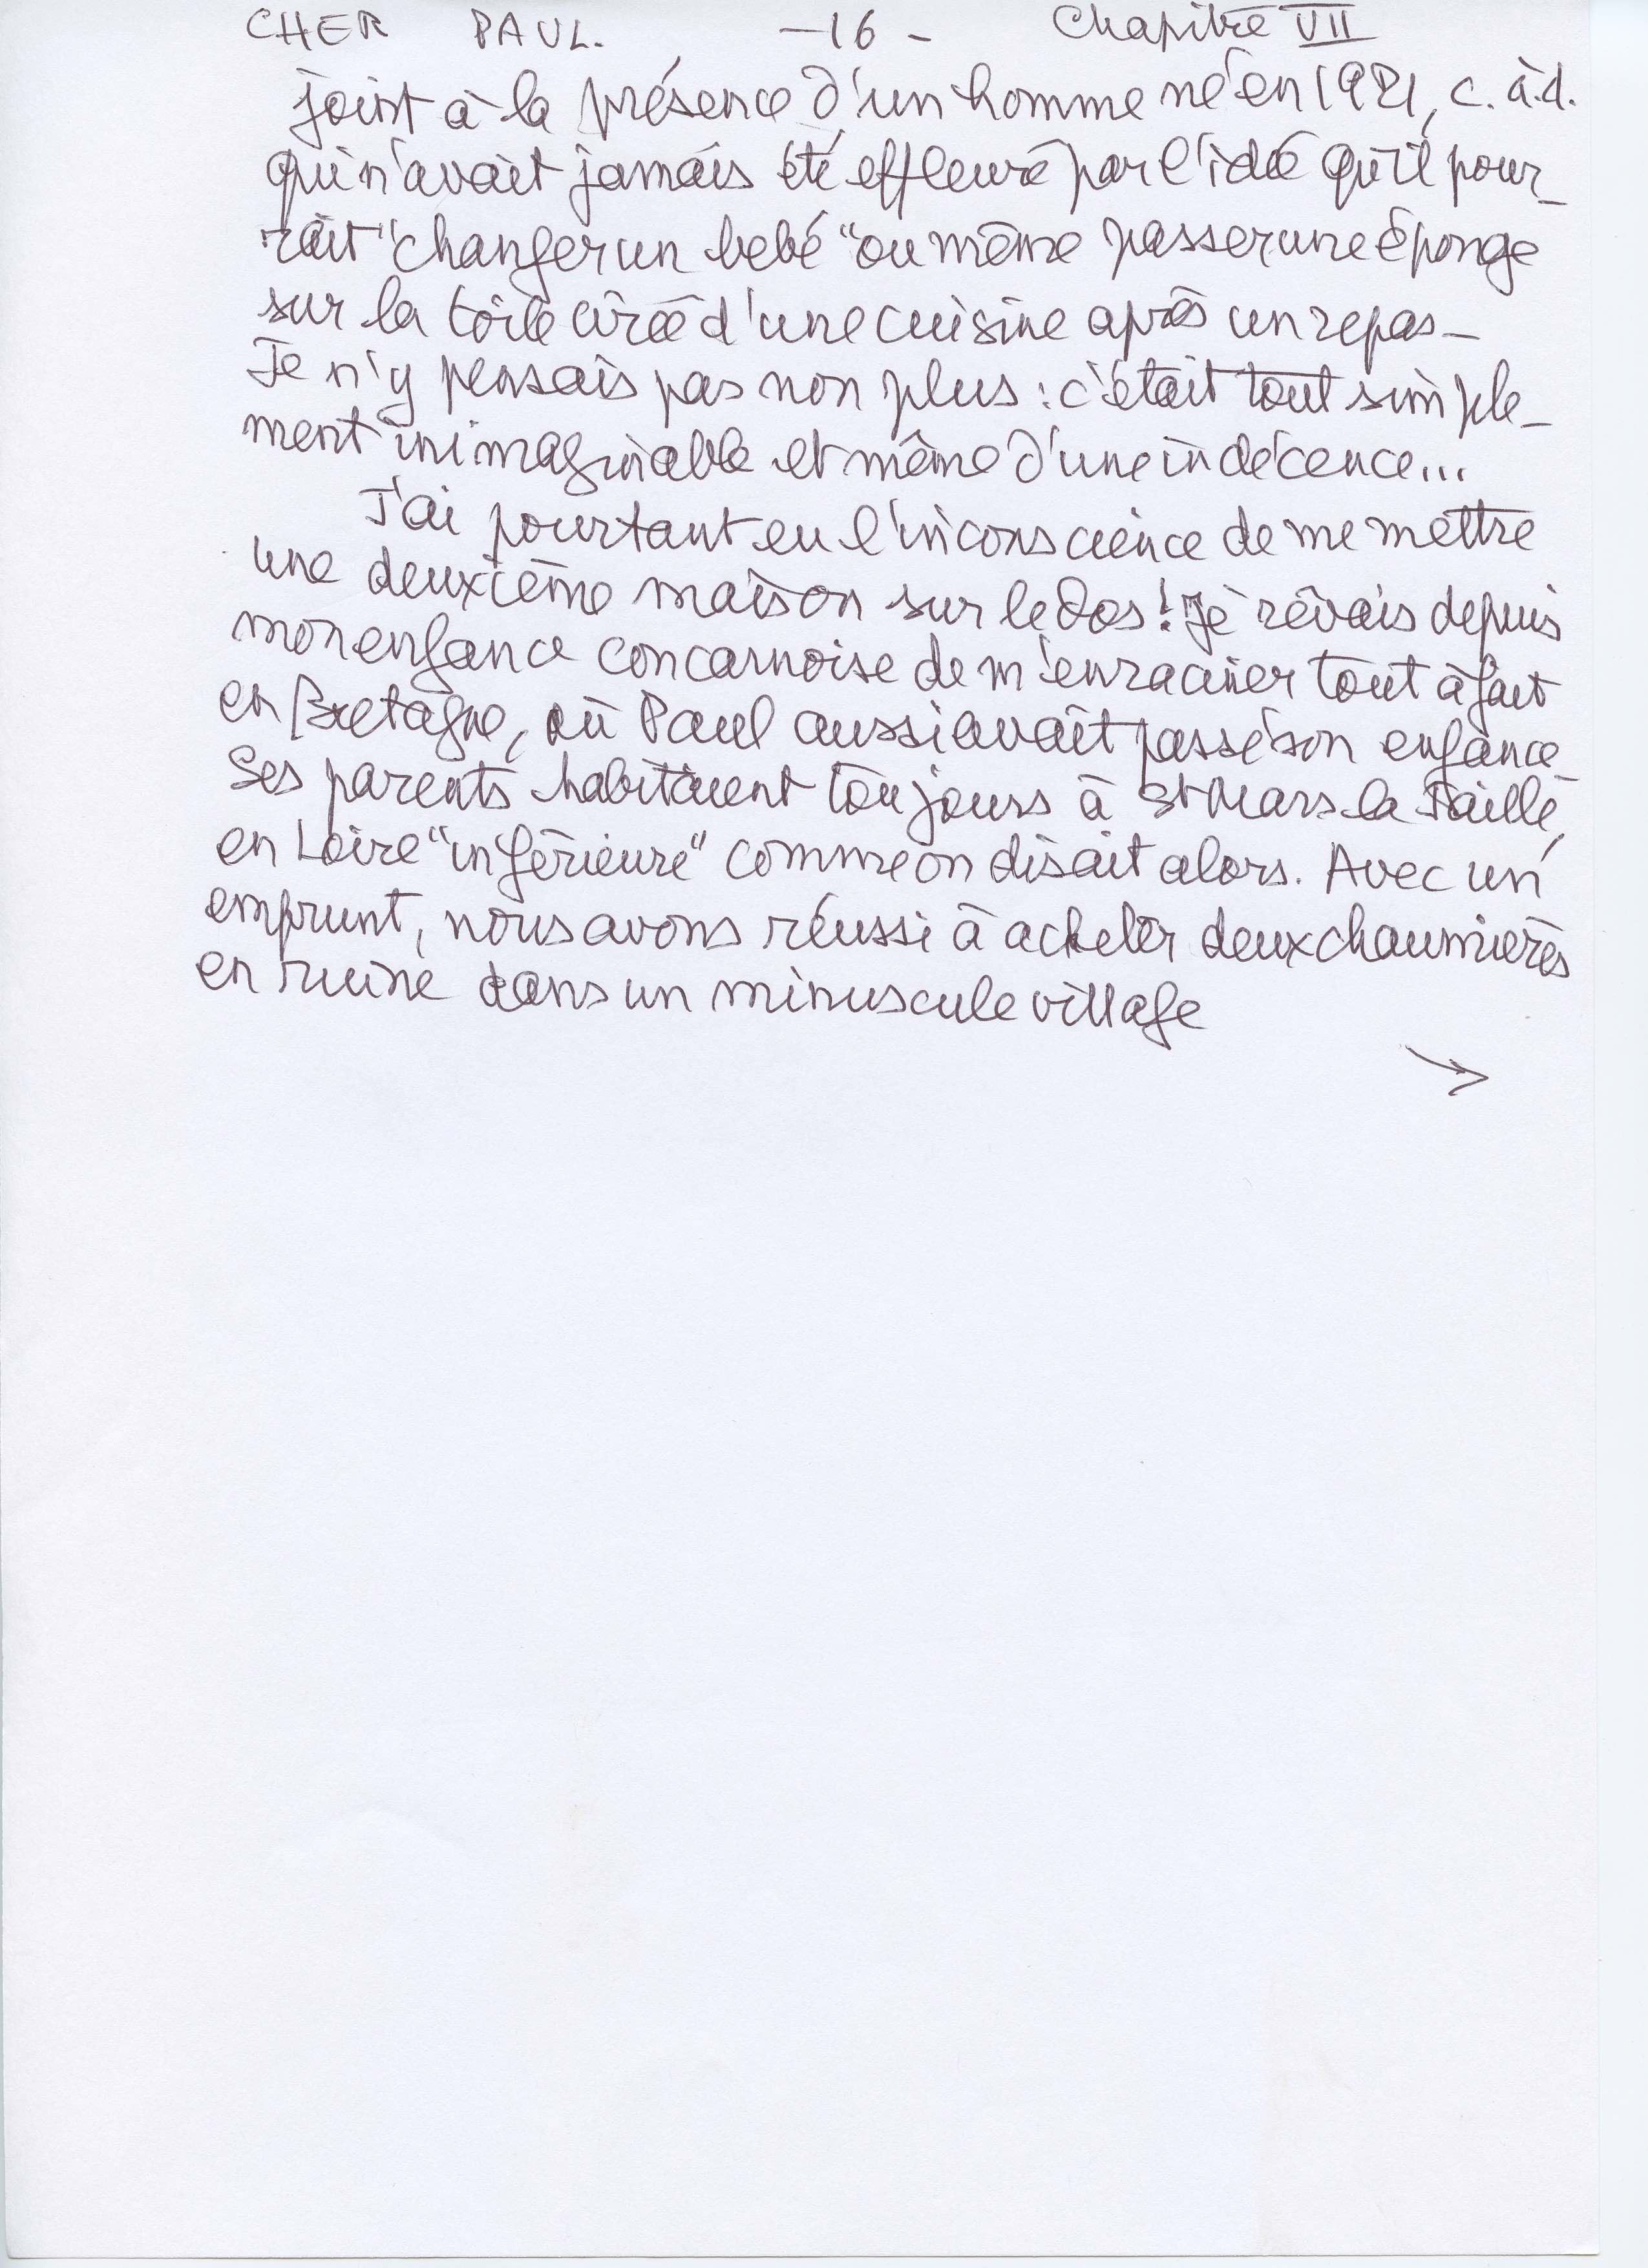 CHER PAUL. -16- Chapitre VII
joint à la présence d'un homme né en 1921, c. à.d.
qui n'avait jamais été effleuré par l'idée qu'il pour-
rait "changer un bébé" ou même passer une éponge
sur la toile cirée d'une cuisine après un repas -
Je n'y pensais pas non plus : c'était tout simple-
ment inimaginable et même d'une indécence...
J'ai pourtant eu l'inconscience de me mettre
une deuxième maison sur le dos ! Je rêvais depuis
mon enfance concarnoise de m'enraciner tout à fait
en Bretagne, où Paul aussi avait passé son enfance -
Ses parents habitaient toujours à St Mars la Jaille,
en Loire "inférieure" comme on disait alors. Avec un
emprunt, nous avons réussi à acheter deux chaumières
en ruine dans un minuscule village
→